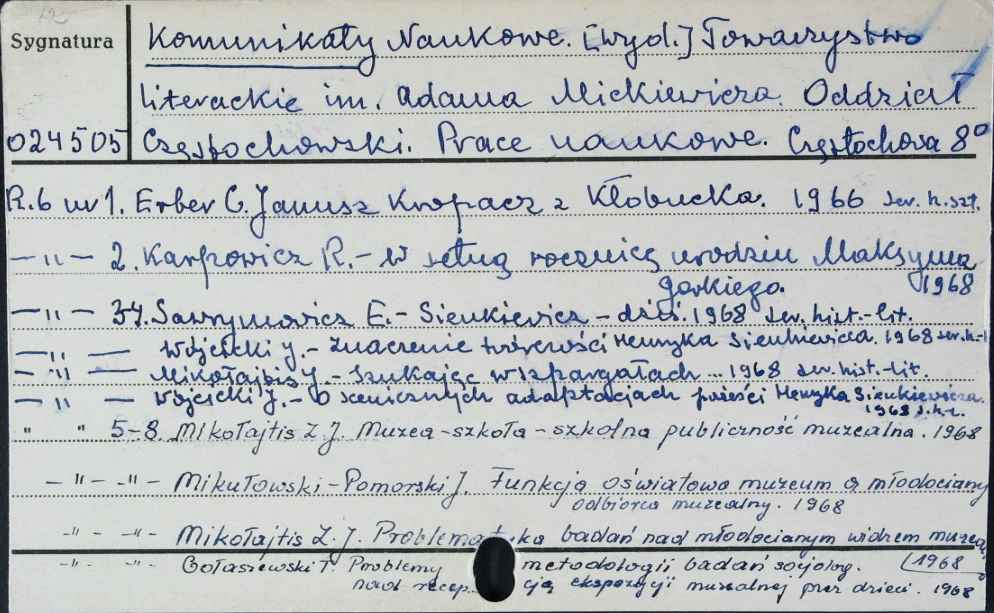 Sygnatura
Komunikaty Naukowe. [wyd.] Towarzystwo
literackie im. Adama Mickiewicza. Oddział
024505 Częstochowski. Prace naukowe. Częstochowa 8°
R.6 nr 1. Erber C. Janusz Kropacz z Kłobucka. 1966 ser. h. szt.
—"— 2. Karpowicz R. - W setną rocznicę urodzin Maksyma
Gorkiego. 1968
—"— 34. Sawrymowicz E. - Sienkiewicz - dziś. 1968 ser. hist.-lit.
—"— Wójcicki J. - Znaczenie twórczości Henryka Sienkiewicza. 1968 ser. h.-l
—"— Mikołajtis J. - Szukając w szpargałach ... 1968 ser. hist.-lit.
—"— Wójcicki J. - O scenicznych adaptacjach powieści Henryka Sienkiewicza.
1968 s.h.-l.
" " 5-8 Mikołajtis Z. J. Muzea - szkoła - szkolna publiczność muzealna. 1968
—"— —"— Mikułowski-Pomorski J. Funkcja oświatowa muzeum a młodociany
odbiorca muzealny. 1968
-"- -"- Mikołajtis Z. J. Problematyka badań nad młodocianym widzem muzea
-"- -"- Gołaszewski T. Problemy metodologii badań socjolog. (1968
nad recep cją ekspozycji muzealnej przez dzieci. 1968